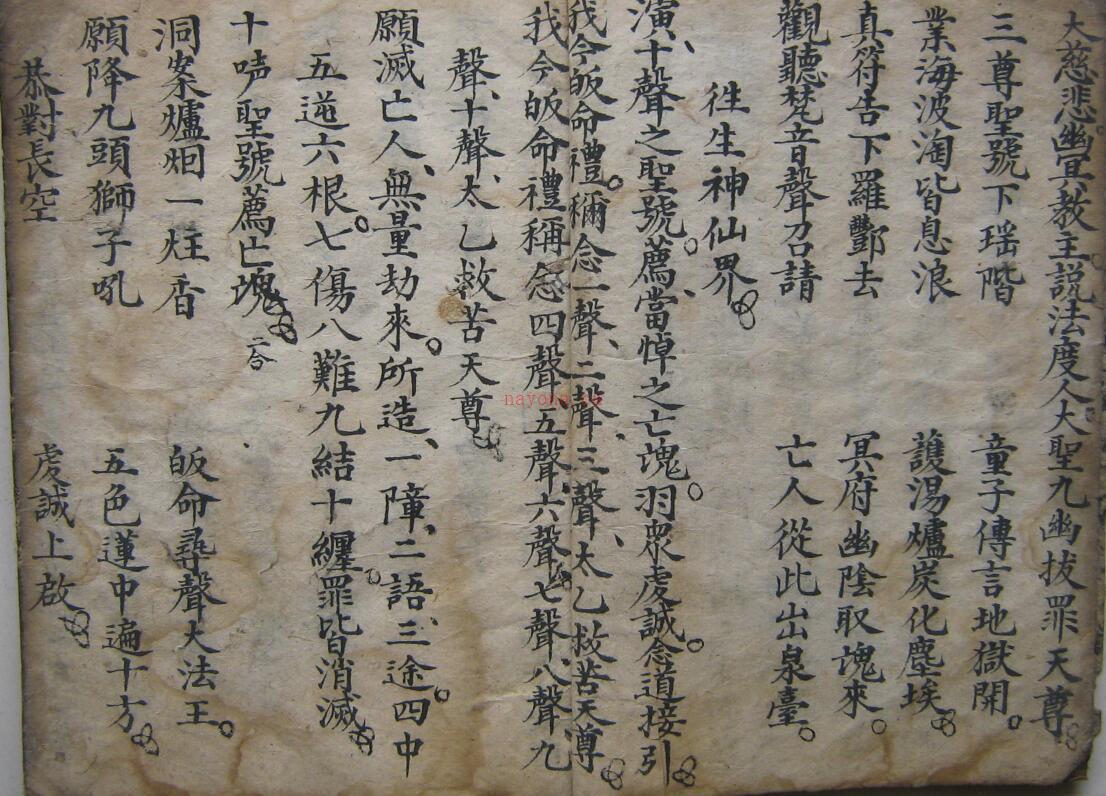 大慈悲幽冥教主説法度人大聖九幽拔罪天尊
三尊聖號下瑶階 童子傳言地獄開
業海波淘皆息浪 護湯爐炭化塵埃
真符告下羅酆去 冥府幽陰取塊來
觀聽梵音聲召請 亡人從此出泉臺
徃生神仙界
演十聲之聖號薦當悼之亡塊羽衆虔誠念道接引
我今皈命禮稱念一聲二聲三聲太乙救苦天尊
我今皈命禮稱念四聲五聲六聲七聲八聲九
聲十聲太乙救苦天尊
願滅亡人無量劫來所造一障二語三途四中
五逆六根七傷八難九結十纏罪皆消滅
十声聖號薦亡塊 二合
洞案爐烟一炷香 皈命尋聲大法王
願降九頭獅子吼 五色蓮中遍十方
恭對長空 虔誠上啟
nayona.cn